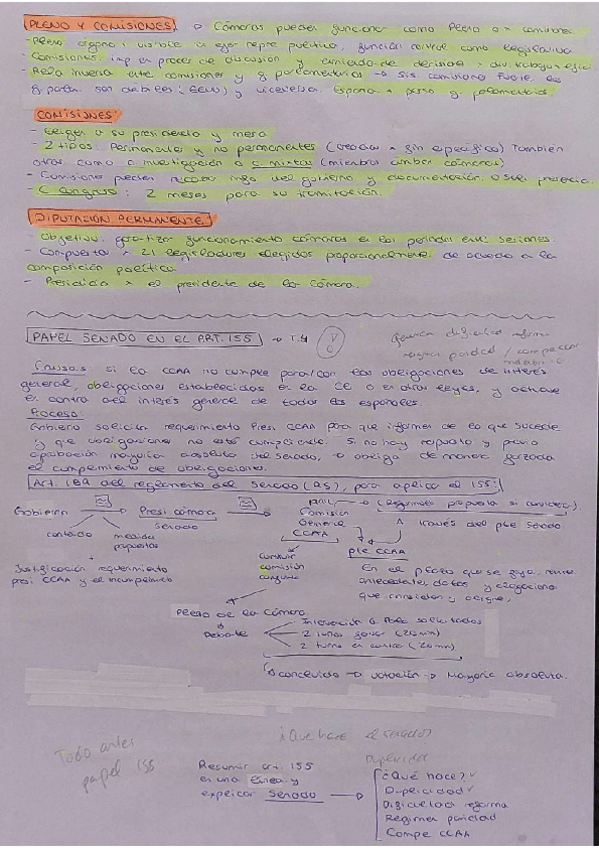 PLENO Y COMISIONES → Cámaras pueden funcionar como Pleno o comisiones.
- Pleno: órgano + visible la ejer repre política, función control como legislativa
- Comisiones: imp en proces de discusión y contenido de decisiones
- Rela inversa entre comisiones y g parlamentarios → Sis comisiones fuerte, los
g parla. son débiles (EEUU) y viceversa. España = g. parlamentarios
COMISIONES:
- Eligen a su presidencia y mesa
- 2 tipos: Permanentes y no permanentes (creadas x fin específico) También
otras como c investigación o c mixtas (miembros ambas cámaras)
- Comisiones pueden recabar info del gobierno y documentación o su presencia.
- C Congreso: 2 meses para su tramitación.
DIPUTACIÓN PERMANENTE
- Objetivo: garantizar funcionamiento cámaras en los periodos entre sesiones.
- Compuesta x 21 legisladores elegidos proporcionalmente de acuerdo a la
composición política
- Presidida x el presidente de la Cámara.
PAPEL SENADO EN EL ART. 155 → T.4
Causas: si la CCAA no cumple para/con las obligaciones de interés
general, obligaciones establecidas en la CE o en otras leyes, y actúe
en contra del interés general de todos los españoles.
Proceso:
Gobierno solicita requerimiento Presi CCAA para que informen de lo que sucede
y que obligaciones no está cumpliendo. Si no hay respuesta y previa
aprobación mayoría absoluta del Senado, → obliga de manera forzada
el cumplimiento de obligaciones.
Art. 189 del reglamento del Senado (RS), para aplicar el 155:
Gobierno → Presi cámara Senado → Comisión General CCAA
(Regimiento propuesta si considera)
contenido medidas propuestas
A través del pte Senado
Justificación requerimiento
presi CCAA y el incumplimiento
comisión conjunta
pte CCAA
En el plazo que se fija, remite
antecedentes, datos y alegaciones
que consideren y designe.
Pleno de la Cámara
Debate
2 turnos favor (20 min)
2 turnos en contra (20 min)
concluido → votación → Mayoría absoluta.
¿Que hace el senado?
Todo antes
papel 155
Duplicidad
Resumir art. 155
en una línea y
explicar Senado →
¿Qué hace? ✓
Duplicidad ✓
Dificultad reforma
Regimen paridad
Compe CCAA